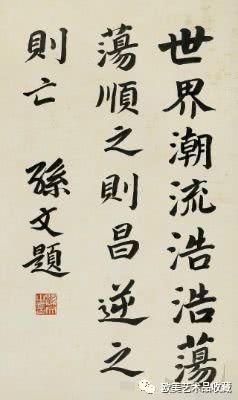 世界潮流浩浩蕩
蕩順之則昌逆之
則亡
孫文題
欧美艺术品收藏